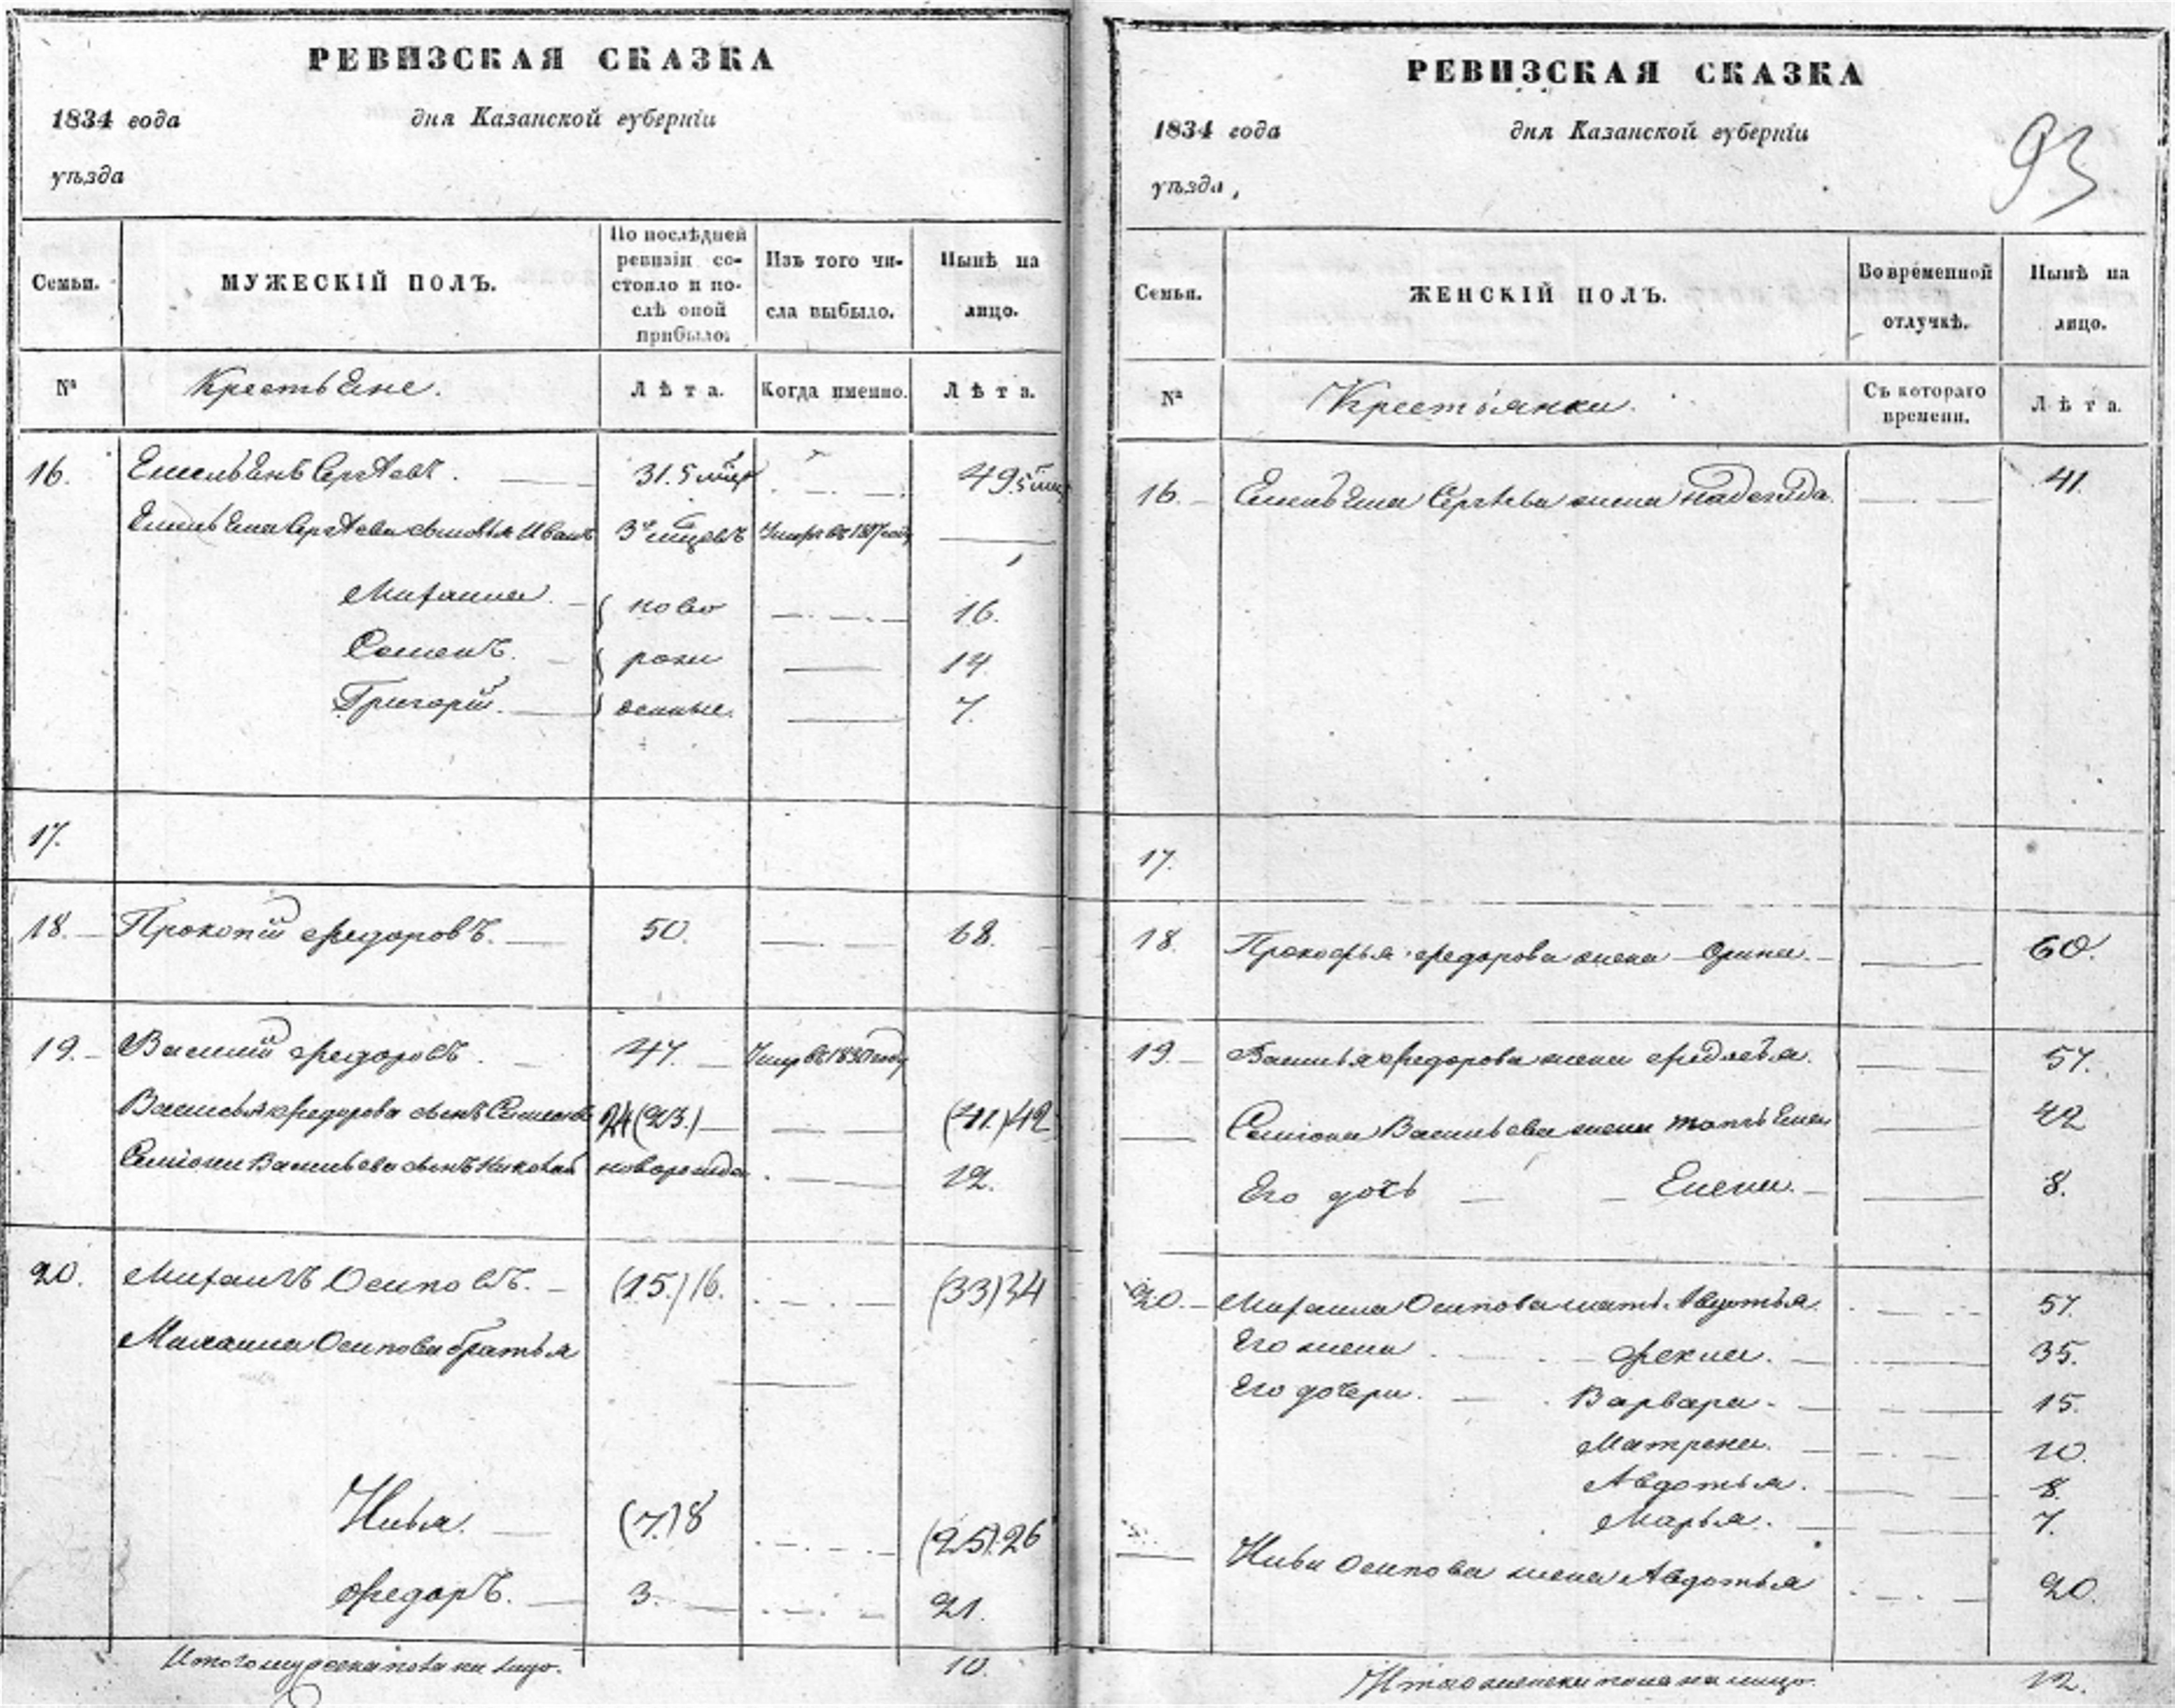 РЕВИЗСКАЯ СКАЗКА
1834 года дня Казанской губернiи
уѣзда
Семьи. МУЖЕСКIЙ ПОЛЪ. По послѣдней ревизiи состояло и послѣ оной прибыло: Изъ того числа выбыло. Нынѣ на лицо.
№ Крестьяне. Лѣта. Когда именно. Лѣта.
16. Емельянъ Сергѣевъ. 31. 5 49 5
Емельяна Сергѣева сыновья Иванъ 3 мцовъ
Михаила ново 16.
Семенъ. рож 14.
Григорiй. денные. 7.
17.
18. Прокопiй Федоровъ. 50. 68.
19. Василiй Федоровъ. 47. Умеръ въ 1830 году
Василья Федорова сынъ Семiонъ 24 (23.) (41.) 42
Семiона Васильева сынъ Николай новорожден. 12.
20. Михаилъ Осиповъ. (15.) 16. (33) 34
Михаила Осипова братья
Илья. (7.) 8 (25). 26
Федоръ. 3. 21.
Итого мужеска пола на лицо. 10.
РЕВИЗСКАЯ СКАЗКА
1834 года дня Казанской губернiи 93
уѣзда,
Семьи. ЖЕНСКIЙ ПОЛЪ. Во временной отлучкѣ. Нынѣ на лицо.
№ Крестьянки. Съ котораго времени. Лѣта.
16. Емельяна Сергѣева жена Надежда. 41.
17.
18. Прокофья Федорова жена Орина. 60.
19. Василья Федорова жена 57.
Семiона Васильева жена Татьяна 42
Его дочь Елена. 8.
20. Михаила Осипова мать Авдотья 57.
Его жена Фекла. 35.
Его дочери. Варвара. 15.
Матрена. 10.
Авдотья. 8.
Марья. 7.
Ильи Осипова жена Авдотья 20.
Итого женска пола на лицо. 12.